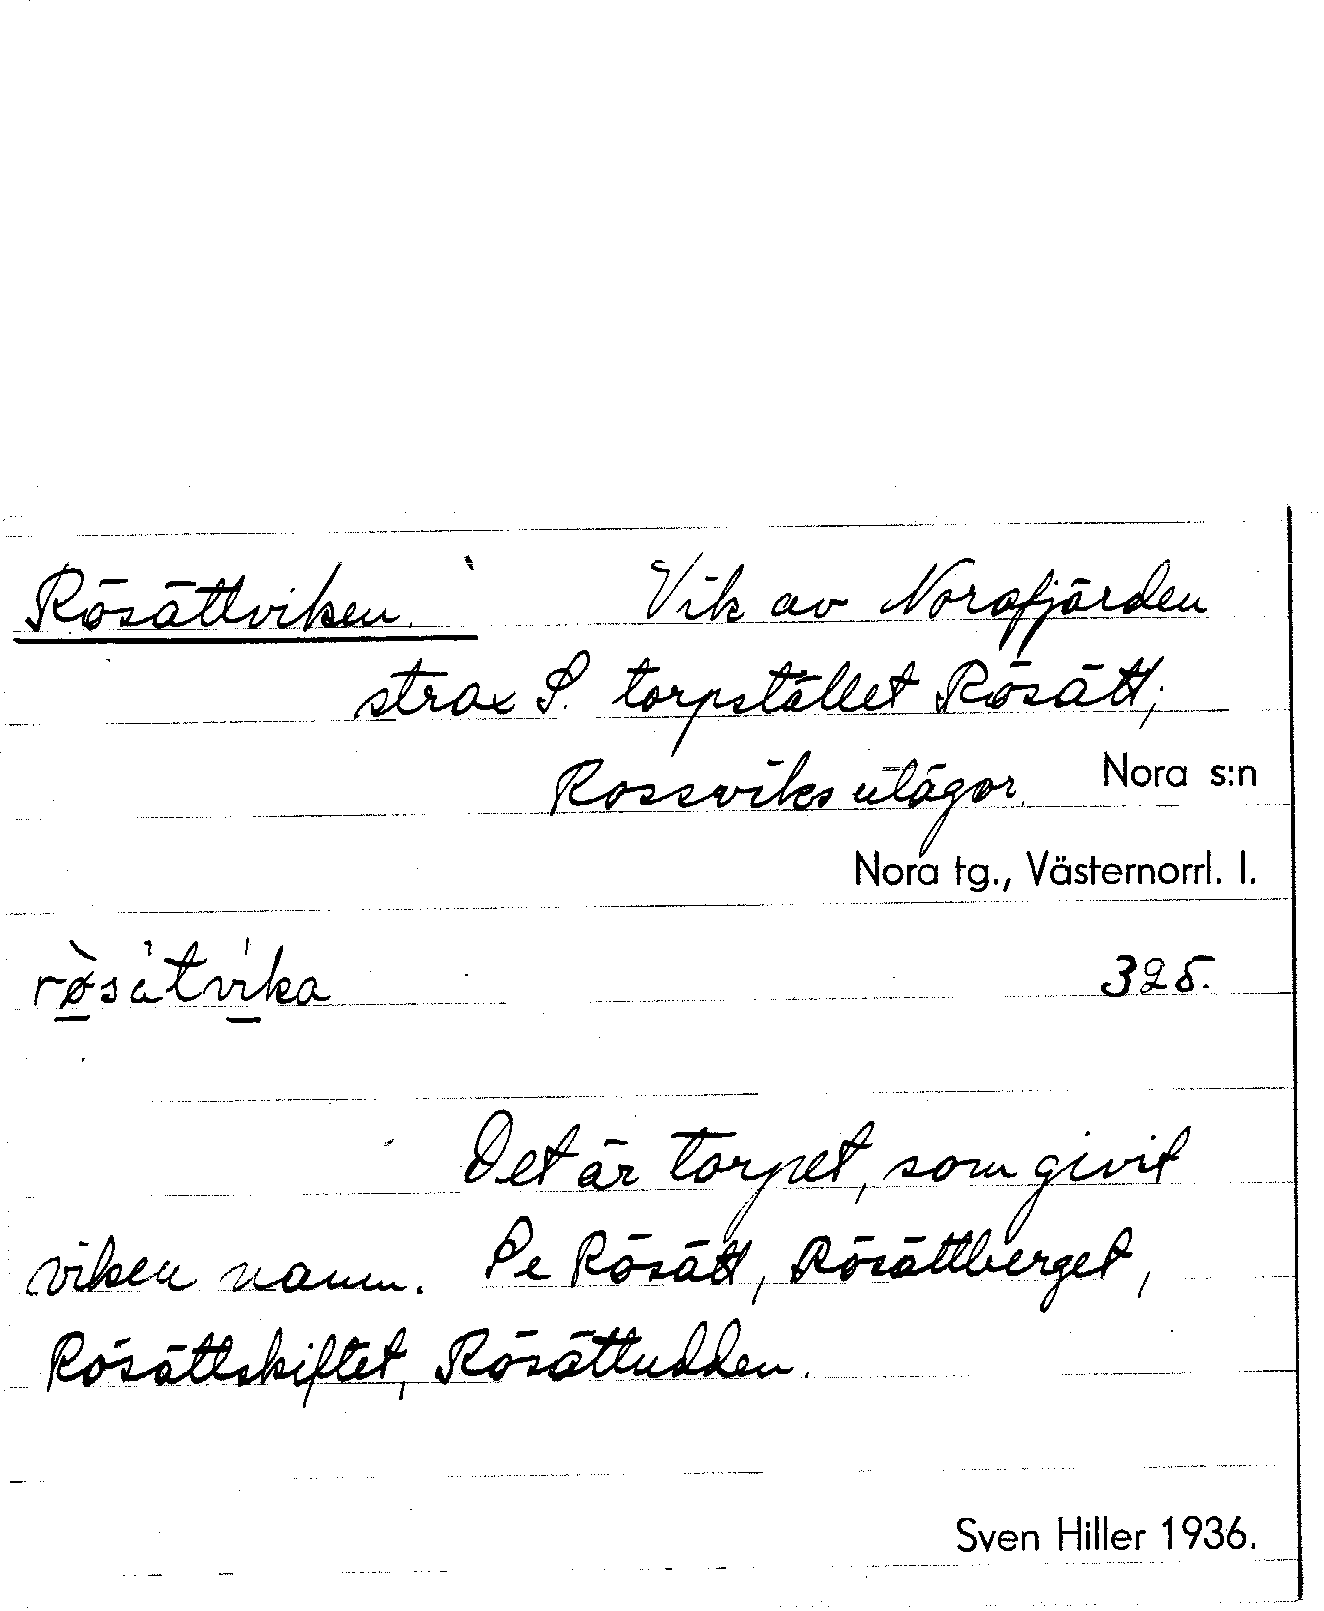 Rösättviken. Vik av Norafjärden
strax S. torpstället Rösätt;
Rossviks utägor. Nora s:n
Nora tg., Västernorrl. l.
rø̀sátvíka 325.
Det är torpet, som givit
viken namn. Se Rösätt, Rösättberget,
Rösättskiftet, Rösättudden.
Sven Hiller 1936.